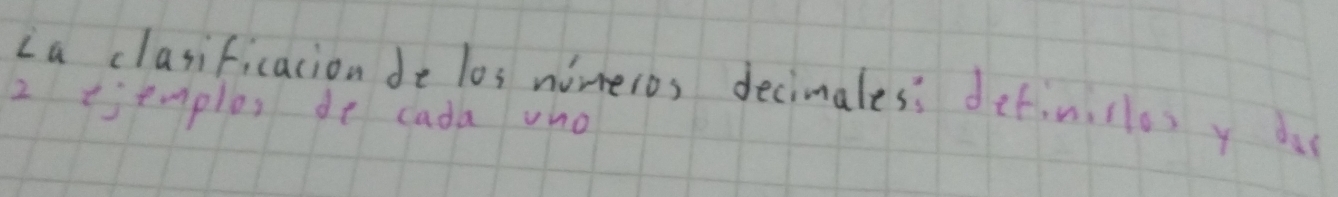 La clasificacion de los números decimales: definirlos y dar
2 ejemplos de cada uno